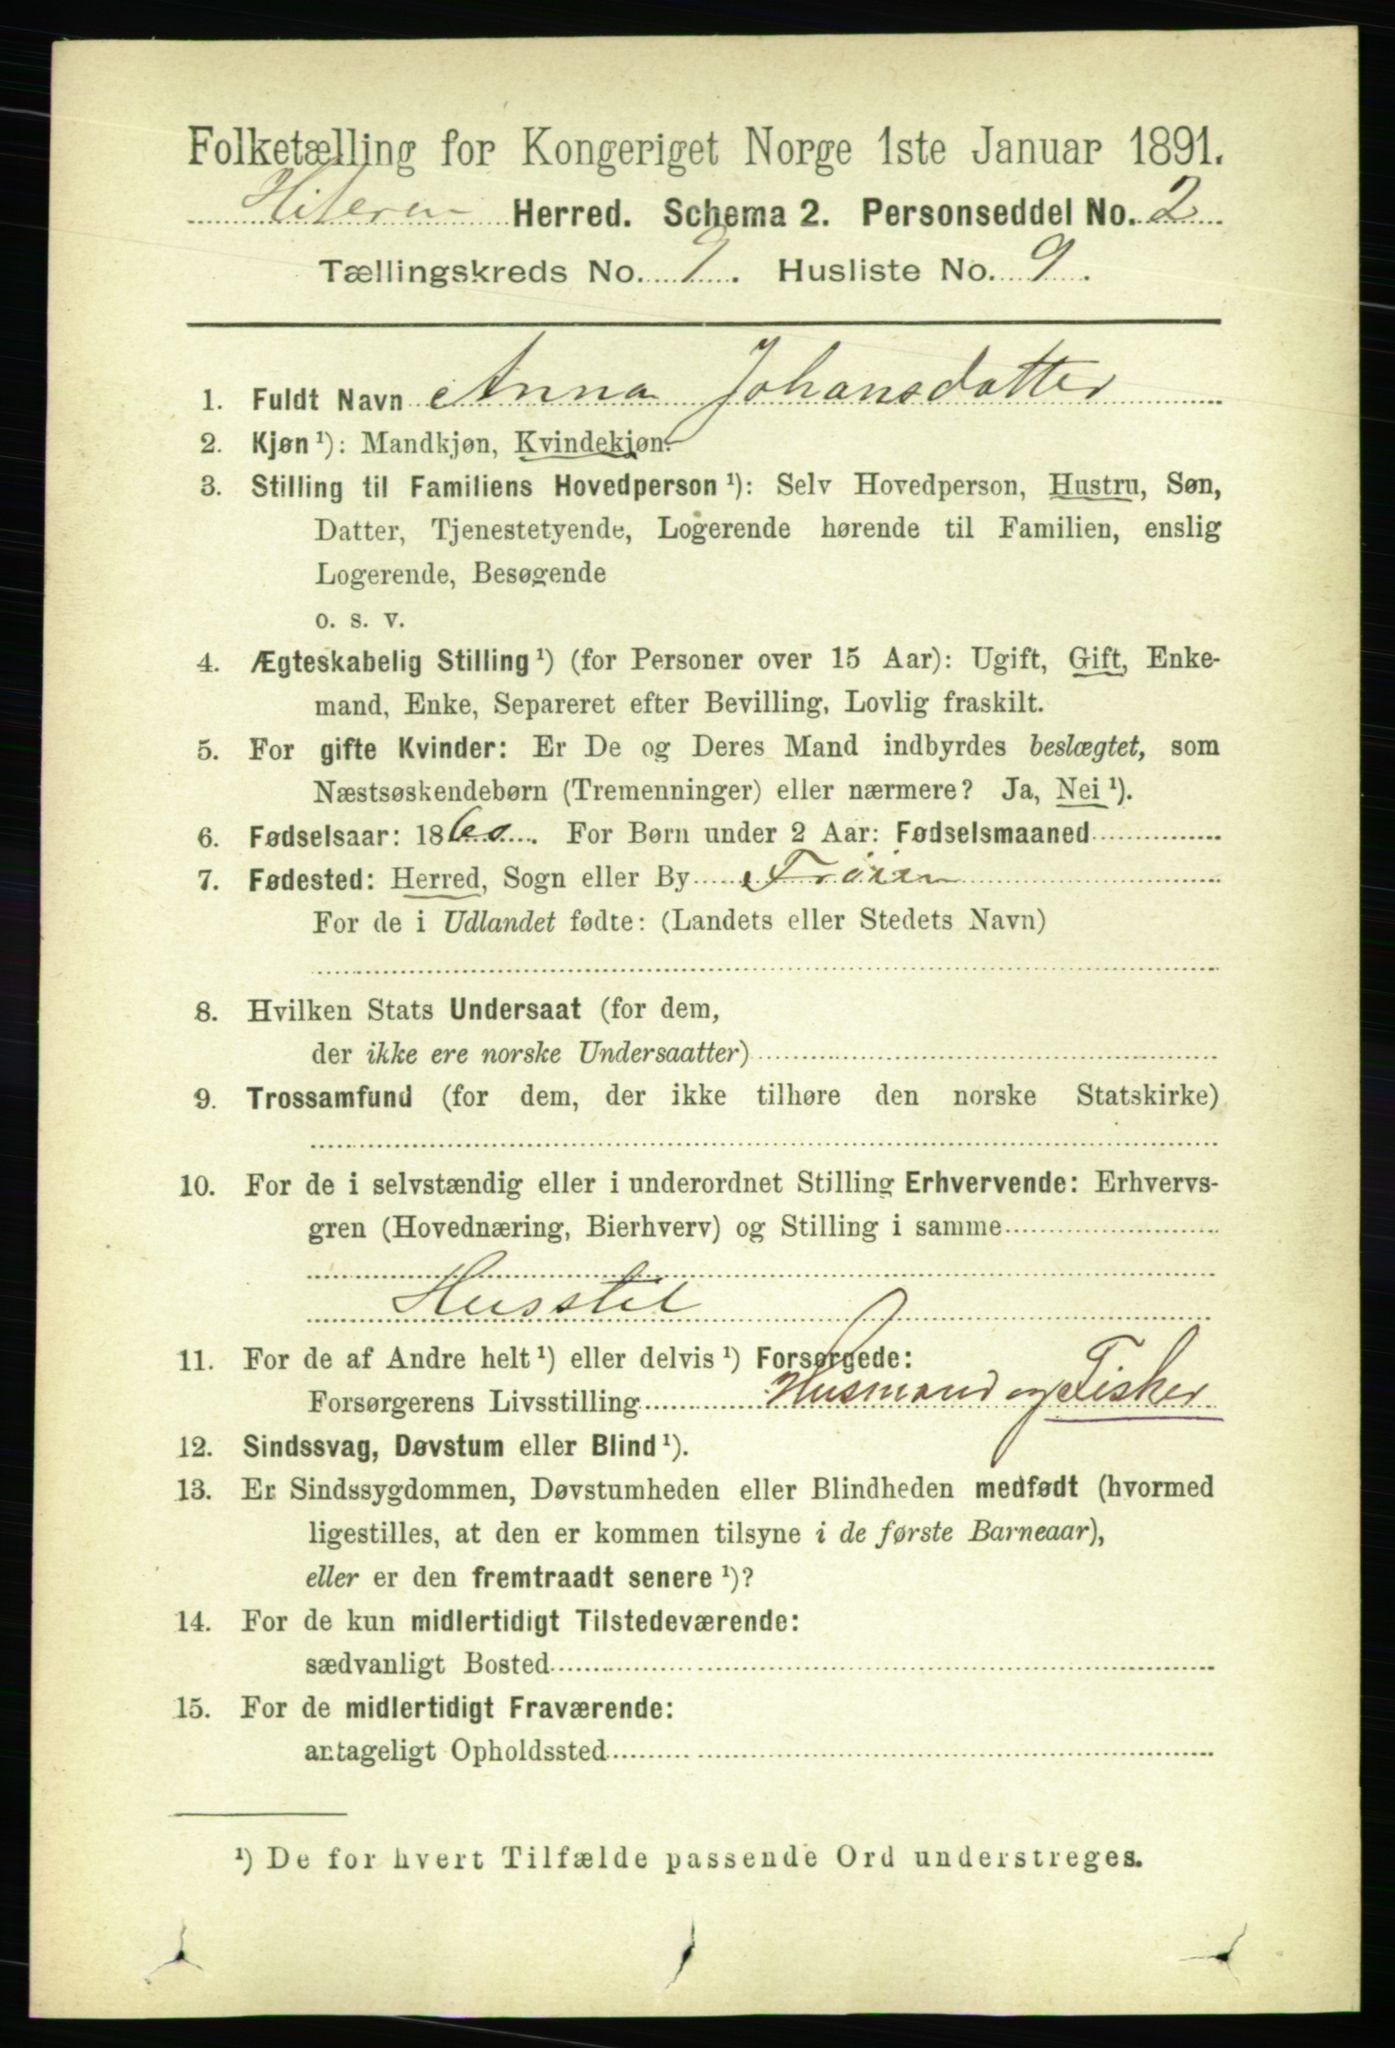 Folketælling for Kongeriget Norge 1ste Januar 1891.
Hiteren Herred. Schema 2. Personseddel No. 2
Tællingskreds No. 9. Husliste No. 9.
1. Fuldt Navn Anna Johansdatter
2. Kjøn ¹): Mandkjøn, Kvindekjøn.
3. Stilling til Familiens Hovedperson ¹): Selv Hovedperson, Hustru, Søn,
Datter, Tjenestetyende, Logerende hørende til Familien, enslig
Logerende, Besøgende
o. s. v.
4. Ægteskabelig Stilling ¹) (for Personer over 15 Aar): Ugift, Gift, Enke-
mand, Enke, Separeret efter Bevilling, Lovlig fraskilt.
5. For gifte Kvinder: Er De og Deres Mand indbyrdes beslægtet, som
Næstsøskendebørn (Tremenninger) eller nærmere? Ja, Nei ¹).
6. Fødselsaar: 1860. For Børn under 2 Aar: Fødselsmaaned
7. Fødested: Herred, Sogn eller By Frøien
For de i Udlandet fødte: (Landets eller Stedets Navn)
8. Hvilken Stats Undersaat (for dem,
der ikke ere norske Undersaatter)
9. Trossamfund (for dem, der ikke tilhøre den norske Statskirke)
10. For de i selvstændig eller i underordnet Stilling Erhvervende: Erhvervs-
gren (Hovednæring, Bierhverv) og Stilling i samme
Husstel
11. For de af Andre helt ¹) eller delvis ¹) Forsørgede:
Forsørgerens Livsstilling Husmand og Fisker
12. Sindssvag, Døvstum eller Blind ¹).
13. Er Sindssygdommen, Døvstumheden eller Blindheden medfødt (hvormed
ligestilles, at den er kommen tilsyne i de første Barneaar),
eller er den fremtraadt senere ¹)?
14. For de kun midlertidigt Tilstedeværende:
sædvanligt Bosted
15. For de midlertidigt Fraværende:
antageligt Opholdssted
¹) De for hvert Tilfælde passende Ord understreges.